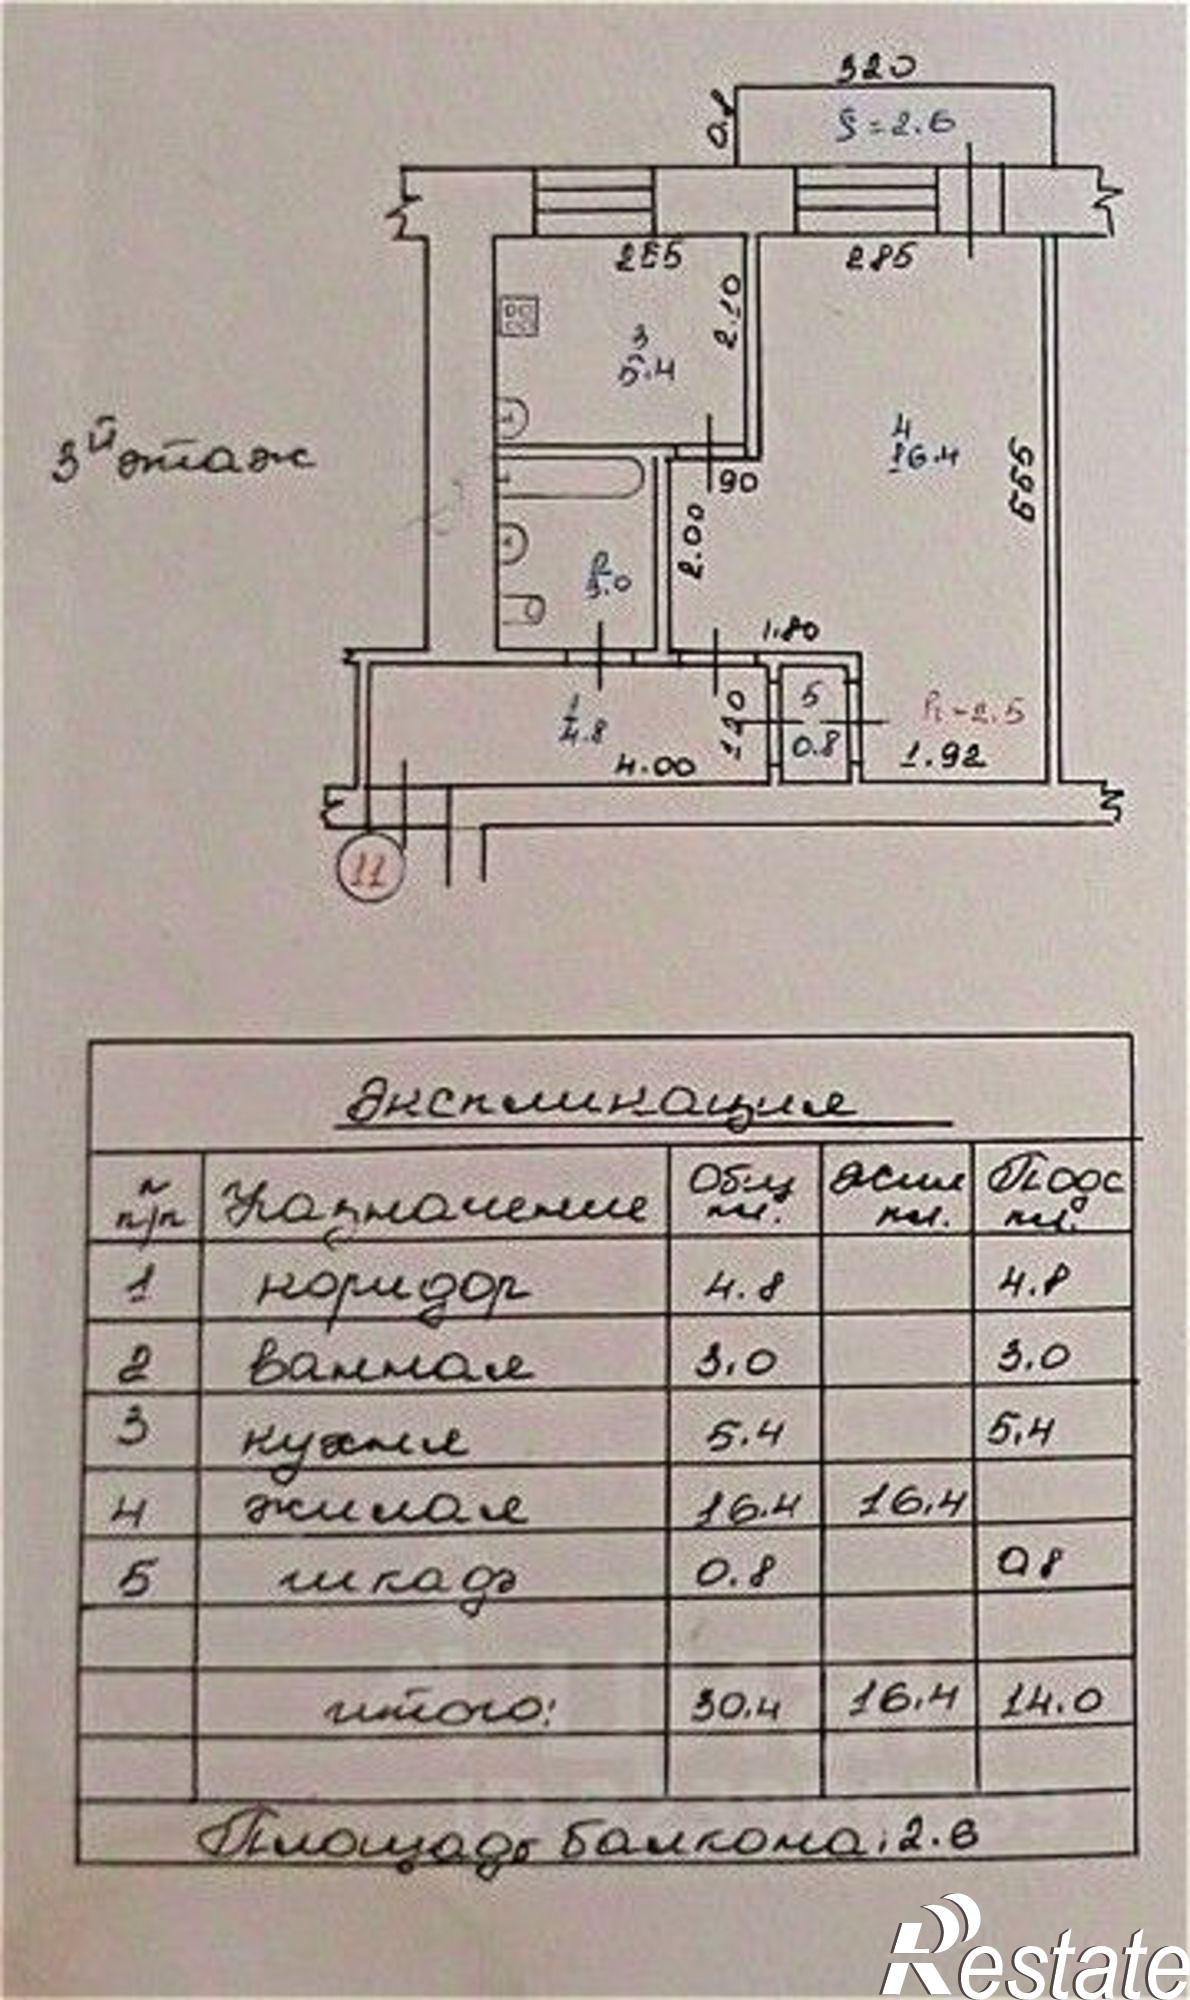 320
0.8
S=2.6
255
285
2.10
3
5.4
3й этаж
4
16.4
599
90
2.00
2
3.0
1.80
1
4.8
1.20
5
0.8
R-2.5
4.00
1.92
11
Экспликация
№ п/п Назначение Общ пл. Жил пл. Подс пл.
1 коридор 4.8 4.8
2 ванная 3.0 3.0
3 кухня 5.4 5.4
4 жилая 16.4 16.4
5 шкаф 0.8 0.8
итого: 30.4 16.4 14.0
Площадь балкона: 2.6
Restate